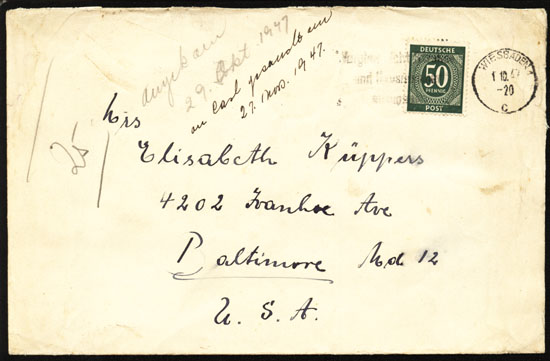 angekom
29. Okt 1947
an Carl gesandt am
27. Nov. 1947.
DEUTSCHE
50
PFENNIG
POST
WIESBADEN
-20
c
25-
Mrs
Elisabeth Küppers
4202 Ivanhoe Ave
Baltimore Md 12
U. S. A.